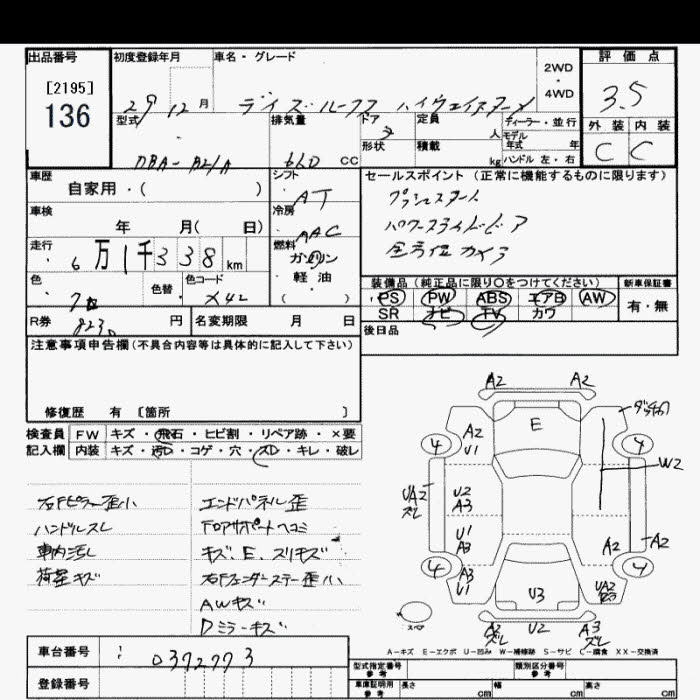 出品番号
[2195]
136
初度登録年月
29 12 月
車名・グレード
デイズルークス ハイウェイスター
2WD
・
4WD
評価点
3.5
外装 内装
C C
型式
DBA-B21A
排気量
660 CC
ドア
5
形状
定員
人
積載
kg
ディーラー・並行
モデル
年式 年
ハンドル 左・右
車歴
自家用・( )
シフト
AT
車検
年 月( 日)
冷房
AAC
走行
6万1千338km
燃料
ガソリン
・
軽・油
( )
色
色替
色コード
X42
R券
8230 円
名変期限 月 日
セールスポイント(正常に機能するものに限ります)
プッシュスタート
パワースライドドア
全方位カメラ
装備品(純正品に限り〇をつけてください)
PS PW ABS エアB AW
SR ナビ TV カワ
新車保証書
有・無
後日品
注意事項申告欄(不具合内容等は具体的に記入して下さい)
修復歴 有〔箇所 〕
検査員
記入欄
FW キズ・飛石・ヒビ割・リペア跡・×要
内装 キズ・汚D・コゲ・穴・スD・キレ・破レ
右Fピラー歪小
ハンドルスレ
車内汚レ
荷室キズ
エンドパネル歪
FロアサポートヘコミE
キズ、E、スリキズ
右Fフェンダーステー歪小
AWキズ
Dミラーキズ
A2 A2
E
4
A2
U1
4
W2
UA2
ズレ
U2
A3
U1
A3
A2
A2
4
A3
U1
U3
UA2
4
スペア
A2
ズレ
U2
A3
ズレ
A-キズ E-エクボ U-凹み W-補修跡 S-サビ C-腐食 XX-交換済
車台番号
0372773
登録番号
型式指定番号
参考
類別区分番号
参考
車庫証明用
参考
長さ cm
幅 cm
高さ cm